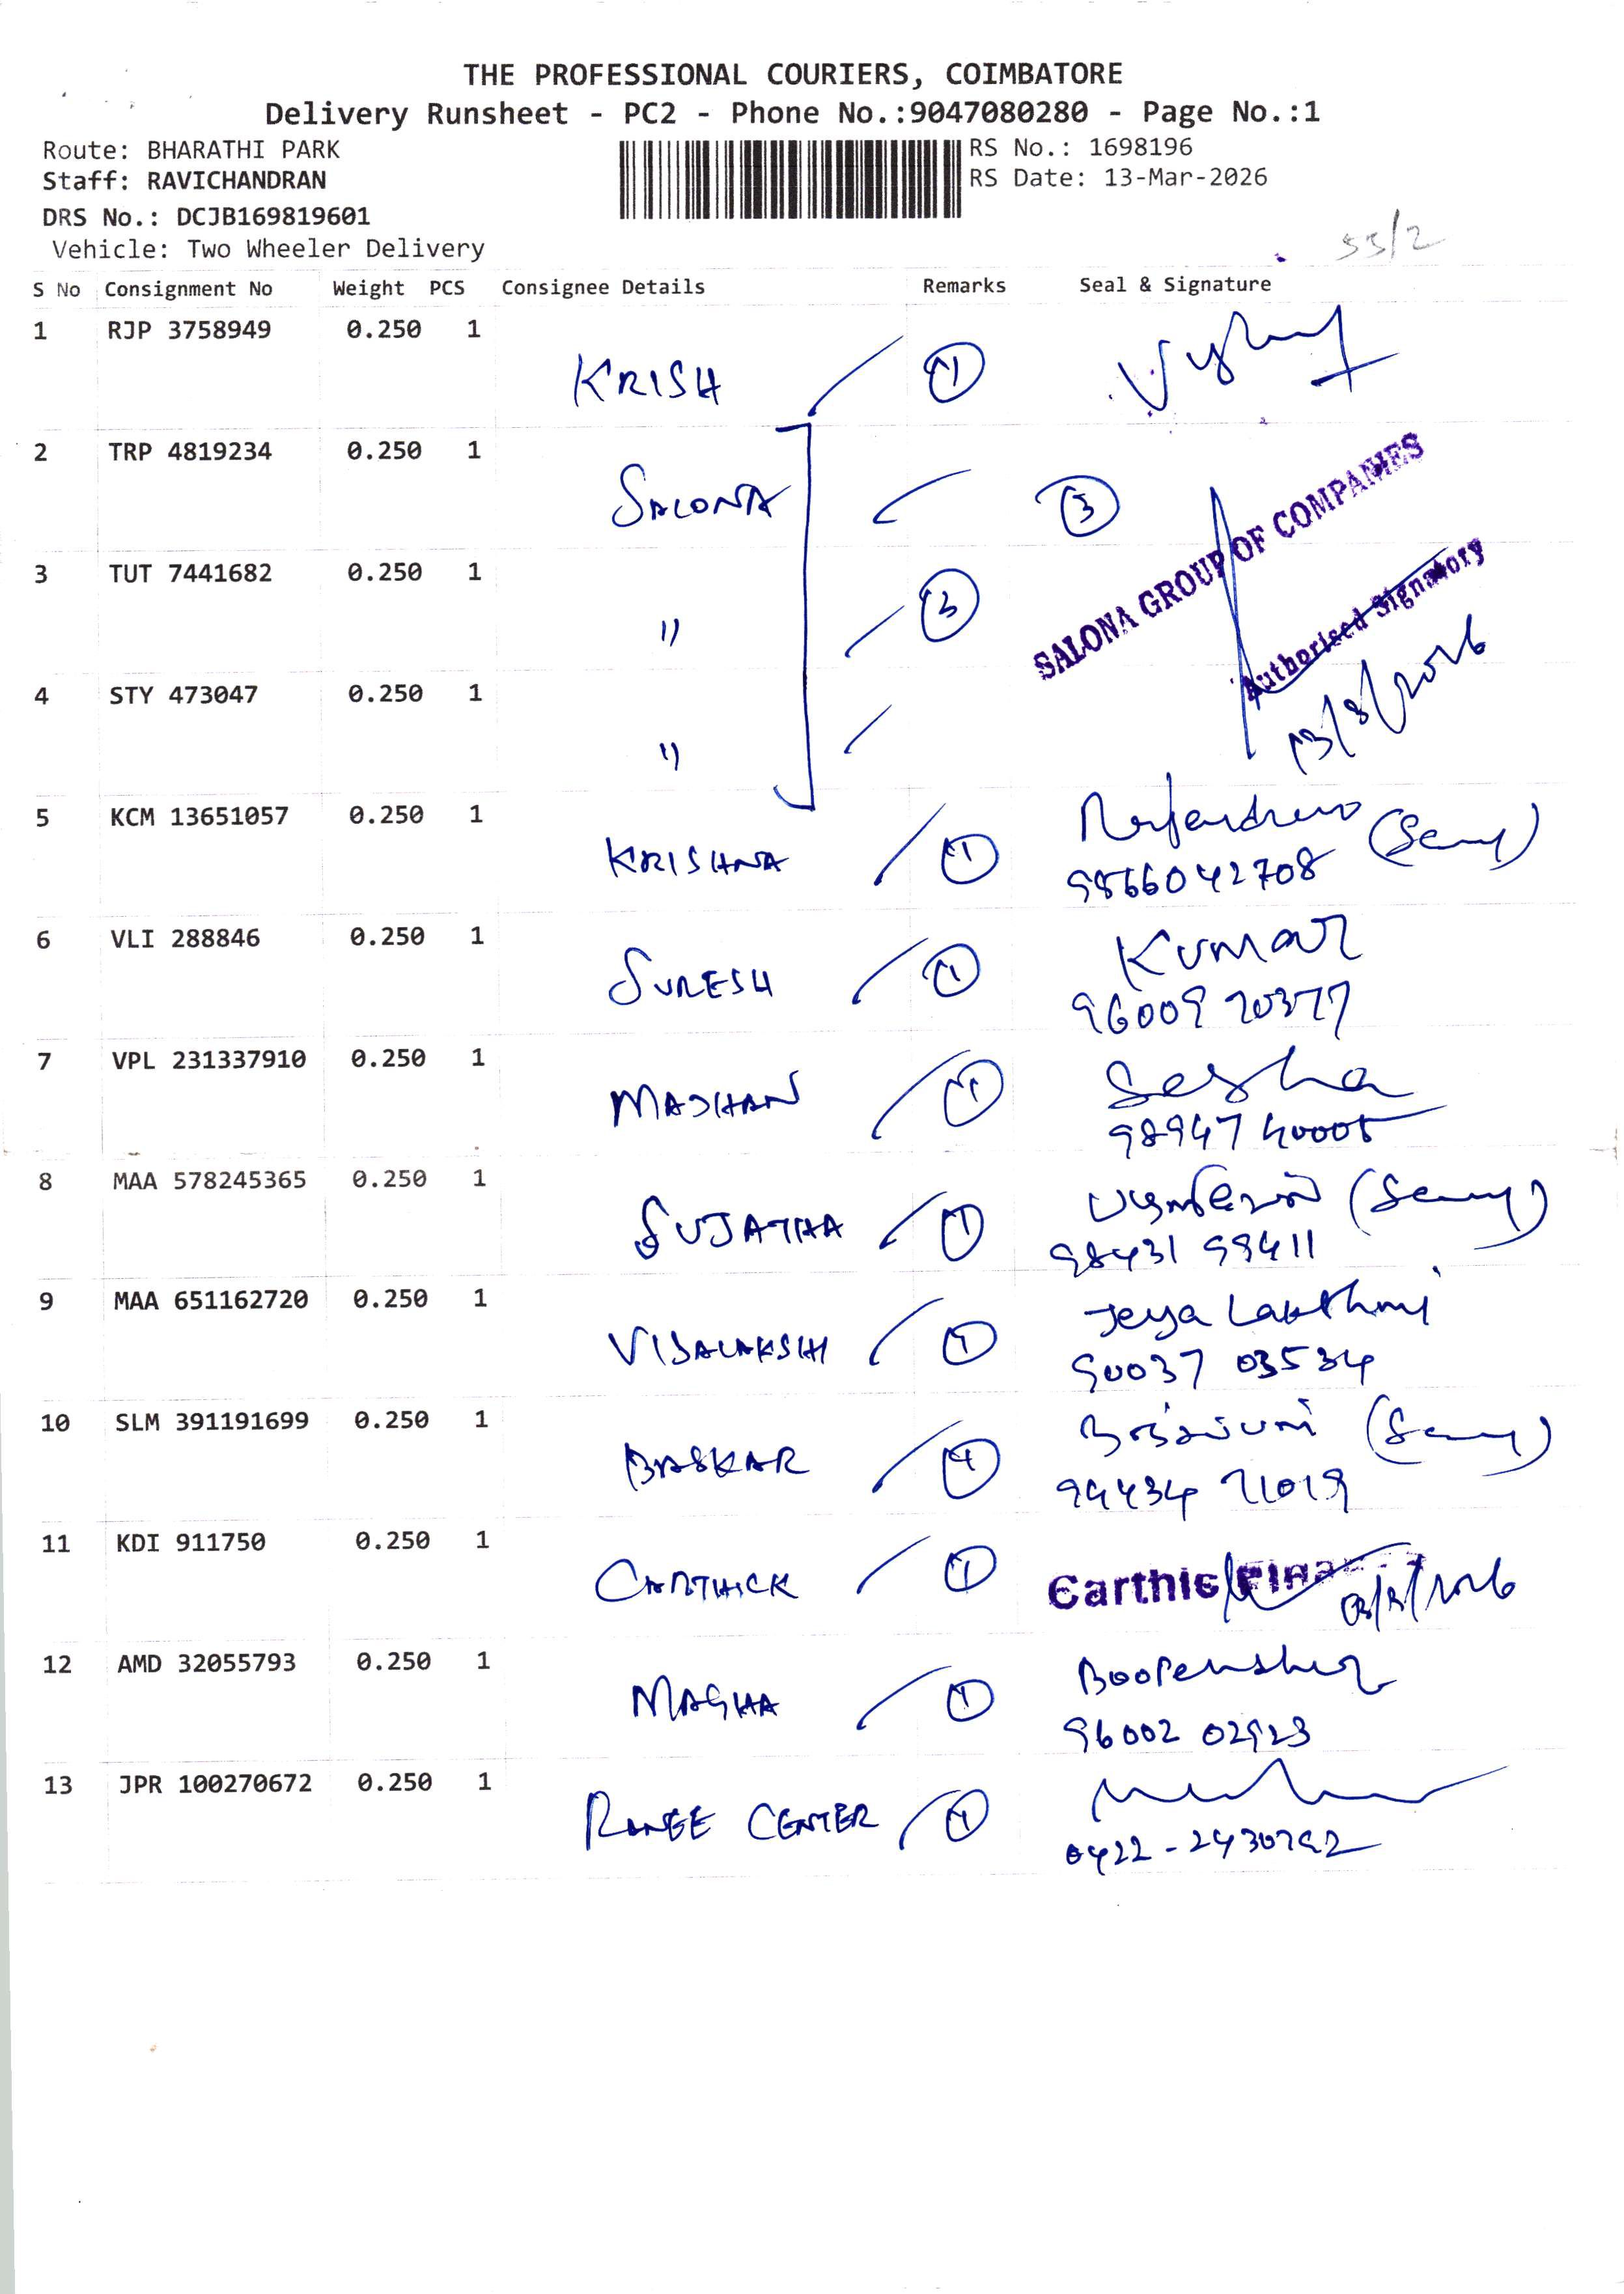 THE PROFESSIONAL COURIERS, COIMBATORE
Delivery Runsheet - PC2 - Phone No.:9047080280 - Page No.:1
Route: BHARATHI PARK RS No.: 1698196
Staff: RAVICHANDRAN RS Date: 13-Mar-2026
DRS No.: DCJB169819601
Vehicle: Two Wheeler Delivery 55/2
S No Consignment No Weight PCS Consignee Details Remarks Seal & Signature
1 RJP 3758949 0.250 1
KRISH 1
2 TRP 4819234 0.250 1
SALONA 3
SALONA GROUP OF COMPANIES
3 TUT 7441682 0.250 1
" 3
Authorised Signatory
4 STY 473047 0.250 1
" 13/3/2026
5 KCM 13651057 0.250 1
KRISHNA 1 9866042708
6 VLI 288846 0.250 1 Kumar
SURESH 1 96009 20377
7 VPL 231337910 0.250 1 Sesha
MADHAN 1 98947 40005
8 MAA 578245365 0.250 1
SUJATHA 1 98431 99411
9 MAA 651162720 0.250 1 Jeya Lakshmi
VISALAKSHI 1 90037 03534
10 SLM 391191699 0.250 1
BASKAR 1 99434 21019
11 KDI 911750 0.250 1
CARTHICK 1 Carthic
12 AMD 32055793 0.250 1
MAGHA 1 96002 02923
13 JPR 100270672 0.250 1
RANEE CENTER 1 0422-2430792